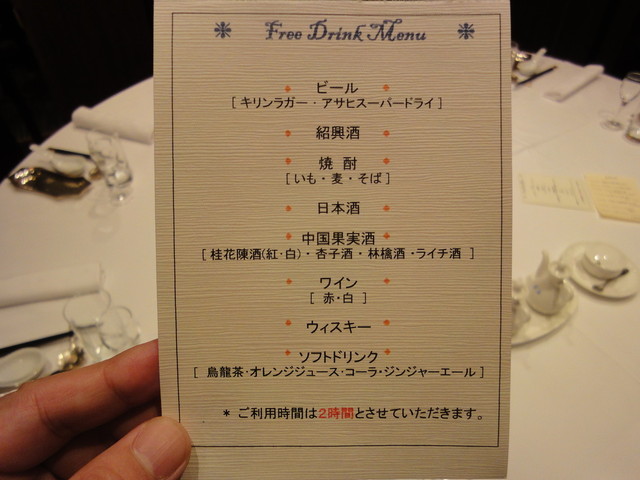 Free Drink Menu
ビール
[ キリンラガー ・ アサヒスーパードライ ]
紹興酒
焼 酎
[ いも ・ 麦 ・ そば ]
日本酒
中国果実酒
[ 桂花陳酒(紅・白) ・ 杏子酒 ・ 林檎酒 ・ライチ酒 ]
ワイン
[ 赤・白 ]
ウィスキー
ソフトドリンク
[ 烏龍茶・オレンジジュース・コーラ・ジンジャーエール ]
* ご利用時間は2時間とさせていただきます。